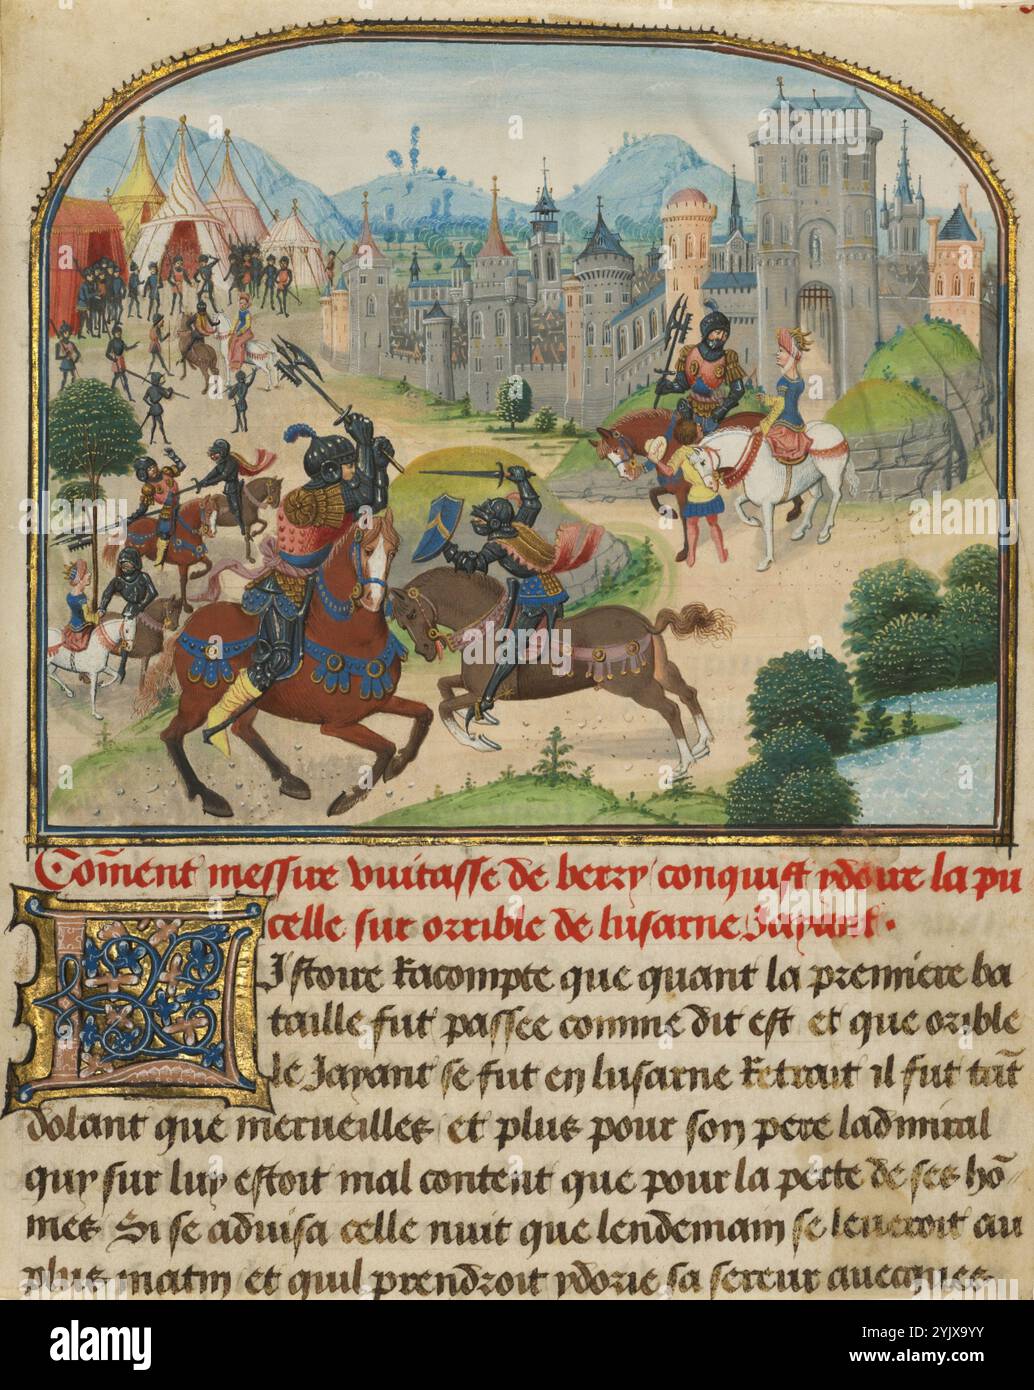 Com̃ent messire vuitasse de berry conquist ydorie la pu
celle sur orrible de lusarne Jayant.
Istoire Racompte que quant la premiere ba
taille fut passee comme dit est et que orible
le Jayant se fut en lusarne Retrait il fut tat̃
dolant que merueilles et plus pour son pere ladmiral
quy sur luy estoit mal content que pour la perte de ses hõ
mes Si se aduisa celle nuit que lendemain se leueroit au
plus matin et quil prendroit ydorie sa sereur auecques
alamy
Image ID: 2YJX9YY
www.alamy.com